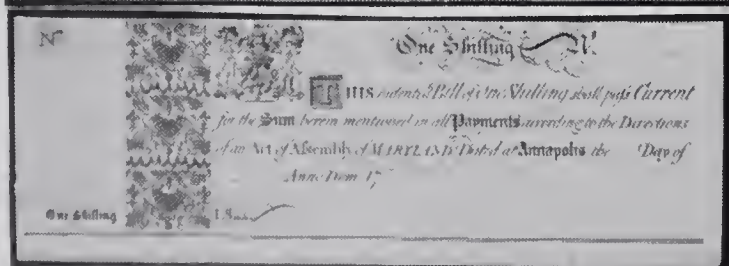 Nº One Shilling Nº
THIS indented Bill of One Shilling shall pass Current
for the Sum herein mentioned in all Payments according to the Directions
of an Act of Assembly of MARYLAND Dated at Annapolis the Day of
Anno Dom. 17
One Shilling 1 S